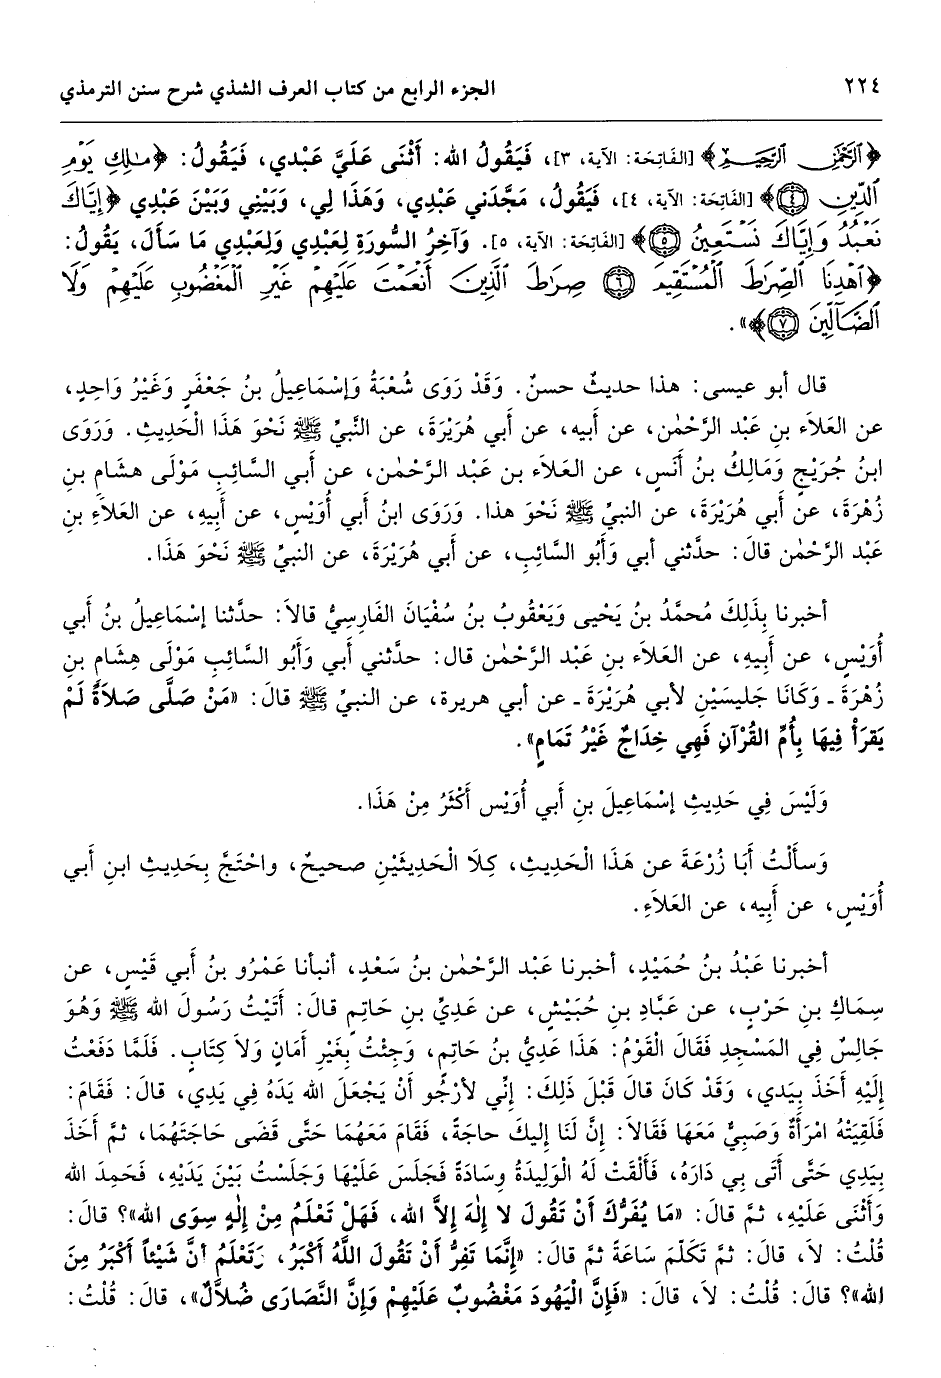 ٢٢٤ الجزء الرابع من كتاب العرف الشذي شرح سنن الترمذي
﴿الرَّحْمَٰنِ الرَّحِيمِ﴾ [الفَاتِحَة: الآية، ٣]، فَيَقُولُ الله: أَثْنَى عَلَيَّ عَبْدِي، فَيَقُولُ: ﴿مَٰلِكِ يَوْمِ
ٱلدِّينِ ٤﴾ [الفَاتِحَة: الآية، ٤]، فَيَقُولُ، مَجَّدَني عَبْدِي، وَهَذَا لِي، وَبَيْنِي وَبَيْنَ عَبْدِي ﴿إِيَّاكَ
نَعْبُدُ وَإِيَّاكَ نَسْتَعِينُ ٥﴾ [الفَاتِحَة: الآية، ٥]. وَآخِرُ السُّورَةِ لِعَبْدِي وَلِعَبْدِي مَا سَأَلَ، يَقُولُ:
﴿ٱهْدِنَا ٱلصِّرَٰطَ ٱلْمُسْتَقِيمَ ٦ صِرَٰطَ ٱلَّذِينَ أَنْعَمْتَ عَلَيْهِمْ غَيْرِ ٱلْمَغْضُوبِ عَلَيْهِمْ وَلَا
ٱلضَّآلِّينَ ٧﴾».
قال أبو عيسى: هذا حديثٌ حسنٌ. وَقَدْ رَوَى شُعْبَةُ وَإِسْمَاعِيلُ بنُ جَعْفَرٍ وَغَيْرُ وَاحِدٍ،
عن العَلاَءِ بنِ عَبْدِ الرَّحْمٰنِ، عن أَبيه، عن أَبي هُرَيْرَةَ، عن النَّبيِّ ﷺ نَحْوَ هَذَا الْحَدِيثِ. وَرَوَى
ابنُ جُرَيْجٍ وَمَالِكُ بنُ أَنَسٍ، عن العَلاَءِ بن عَبْدِ الرَّحْمٰنِ، عن أَبي السَّائِبِ مَوْلَى هشَام بنِ
زُهْرَةَ، عن أَبي هُرَيْرَةَ، عن النبيِّ ﷺ نَحْوَ هذا. وَرَوَى ابنُ أَبي أُوَيْسٍ، عن أَبِيهِ، عن العَلاَءِ بنِ
عَبْدِ الرَّحْمٰن قالَ: حدَّثني أبي وَأَبُو السَّائِبِ، عن أَبي هُرَيْرَةَ، عن النبيِّ ﷺ نَحْوَ هَذَا.
أخبرنا بِذَلِكَ مُحمَّدُ بنُ يَحْيى وَيَعْقُوبُ بنُ سُفْيَانَ الفَارِسِيُّ قالاَ: حدَّثنا إسْمَاعِيلُ بنُ أَبي
أُوَيْسٍ، عن أَبِيهِ، عن العَلاَءِ بنِ عَبْدِ الرَّحْمٰن قال: حدَّثني أَبي وَأَبُو السَّائِبِ مَوْلَى هِشَام بنِ
زُهْرَةَ ـ وَكَانَا جَلِيسَيْنِ لأبي هُرَيْرَةَ ـ عن أبي هريرة، عن النبيِّ ﷺ قالَ: «مَنْ صَلَّى صَلاَةً لَمْ
يَقرَأْ فِيهَا بِأُمِّ القُرْآنِ فَهِي خِدَاجٌ غَيْرُ تَمَامٍ».
وَلَيْسَ فِي حَدِيثِ إسْمَاعِيلَ بنِ أَبي أُوَيْسٍ أَكْثَرُ مِنْ هَذَا.
وَسأَلْتُ أَبَا زُرْعَةَ عن هَذَا الْحَدِيثِ، كِلَا الْحَدِيثَيْنِ صحيحٌ، واحْتَجَّ بِحَدِيثِ ابنِ أَبي
أُوَيْسٍ، عن أَبِيه، عن العَلاَءِ.
أخبرنا عَبْدُ بنُ حُمَيْدٍ، أخبرنا عَبْد الرَّحْمٰن بنُ سَعْدٍ، أنبأنا عَمْرُو بنُ أَبي قَيْسٍ، عن
سِمَاكِ بنِ حَرْبٍ، عن عَبَّادِ بنِ حُبَيْشٍ، عن عَدِيِّ بنِ حَاتِمٍ قالَ: أَتَيْتُ رَسُولَ الله ﷺ وَهُوَ
جَالِسٌ فِي المَسْجِدِ فَقَالَ الْقَوْمُ: هَذَا عَدِيُّ بنُ حَاتِمٍ، وَجِئْتُ بِغَيْرِ أَمَانٍ وَلاَ كِتَابٍ. فَلَمَّا دَفَعْتُ
إِلَيْهِ أَخَذَ بِيَدي، وَقَدْ كَانَ قالَ قَبْلَ ذَلِكَ: إنِّي لأرْجُو أَنْ يَجْعَلَ الله يَدَهُ فِي يَدِي، قالَ: فَقَامَ:
فَلَقِيَتْهُ امْرَأَةٌ وَصَبِيٌّ مَعَهَا فَقَالاَ: إِنَّ لَنَا إِليكَ حاجَةً، فَقَامَ مَعَهُمَا حَتَّى قَضَى حَاجَتَهُمَا، ثمَّ أَخَذَ
بِيَدِي حَتَّى أَتَى بِي دَارَهُ، فَأَلْقَتْ لَهُ الْوَلِيدَةُ وِسادَةً فَجلَسَ عَلَيْهَا وَجَلَسْتُ بَيْنَ يَدَيْهِ، فَحَمِدَ الله
وَأَثْنَى عَلَيْهِ، ثمَّ قالَ: «مَا يُفَرُّكَ أَنْ تَقُولَ لا إِلٰهَ إِلاَّ الله، فَهَلْ تَعْلَمُ مِنْ إِلٰهٍ سِوَى الله»؟ قالَ:
قُلْتُ: لاَ، قالَ: ثمَّ تَكَلّمَ سَاعَةً ثمَّ قالَ: «إِنَّمَا تَفِرُّ أَنْ تَقُولَ اللَّهُ أَكْبَرُ، وَتَعْلَمُ أنَّ شَيْئاً أَكْبَرُ مِنَ
الله»؟ قالَ: قُلْتُ: لاَ، قالَ: «فَإِنَّ الْيَهُودَ مَغْضُوبٌ عَلَيْهِمْ وَإِنَّ النَّصَارَى ضُلاَّلٌ»، قالَ: قُلْتُ: